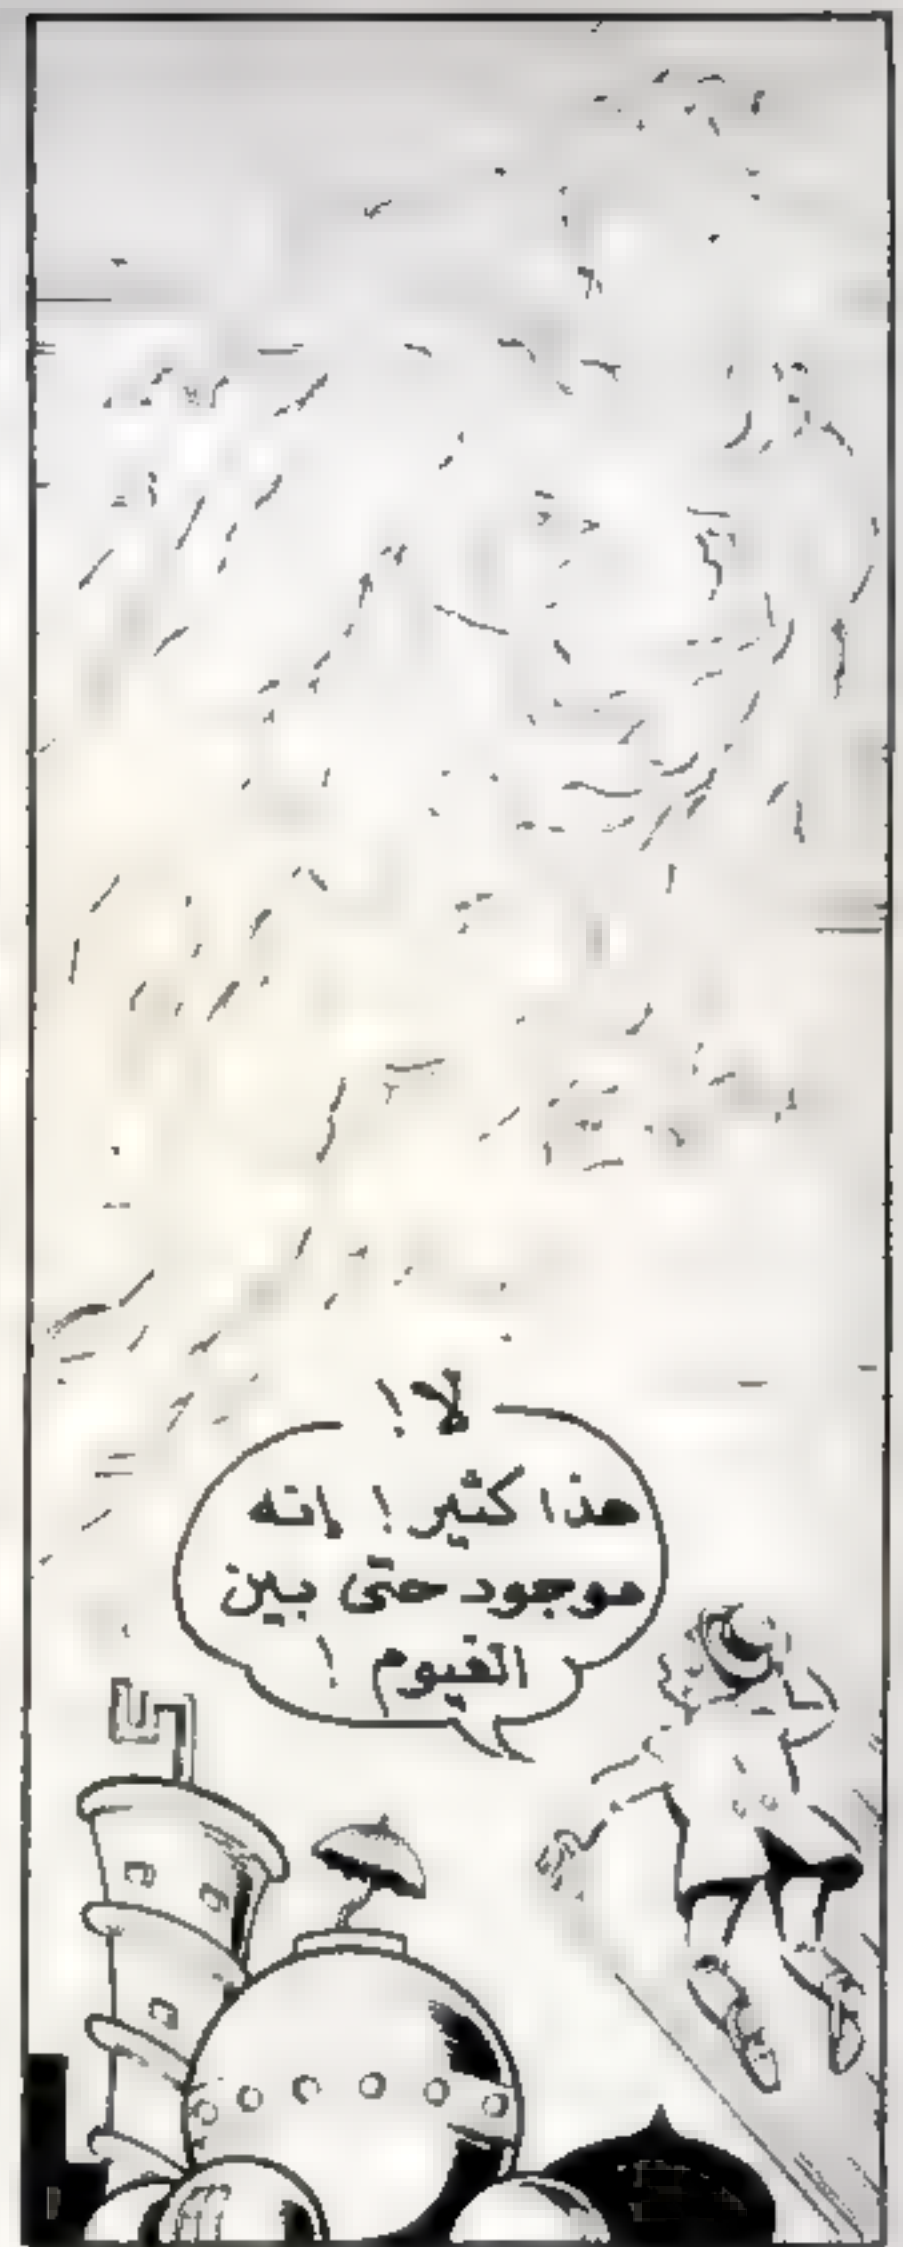 لا!
هذا كثير! إنه
موجود حتى بين
الغيوم!